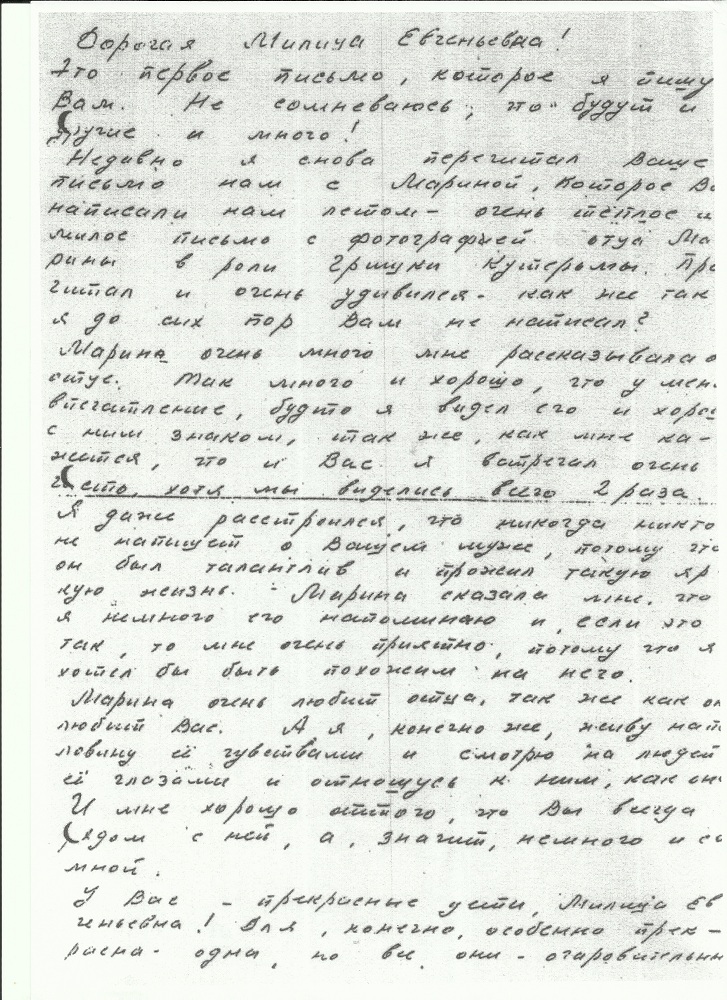 Дорогая Милица Евгеньевна!
Это первое письмо, которое я пишу
Вам. Не сомневаюсь, что будут и
другие и много!
Недавно я снова перечитал Ваше
письмо нам с Мариной, которое В
написали нам летом – очень тёплое и
милое письмо с фотографией отца Ма
рины в роли Гришки Кутерьмы. Про
читал и очень удивился – как же так
я до сих пор Вам не написал?
Марина очень много мне рассказывала о
отце. Так много и хорошо, что у мен
впечатление, будто я видел его и хоро
с ним знаком, так же, как мне ка-
жется, что и Вас я встречал очень
часто, хотя мы виделись всего 2 раза.
Я даже расстроился, что никогда никто
не напишет о Вашем муже, потому что
он был талантлив и прожил такую яр
кую жизнь. Марина сказала мне, что
я немного его напоминаю и, если это
так, то мне очень приятно, потому что я
хотел бы быть похожим на него.
Марина очень любит отца, так же как он
любит Вас. А я, конечно же, живу на
ловину её чувствами и смотрю на людей
её глазами и отношусь к ним, как он
И мне хорошо оттого, что Вы всегда
рядом с ней, а, значит, немного и со
мной.
У Вас – прекрасные дети, Милица Ев
геньевна! Для, конечно, особенно прек-
расна – одна, но все они – очаровательн